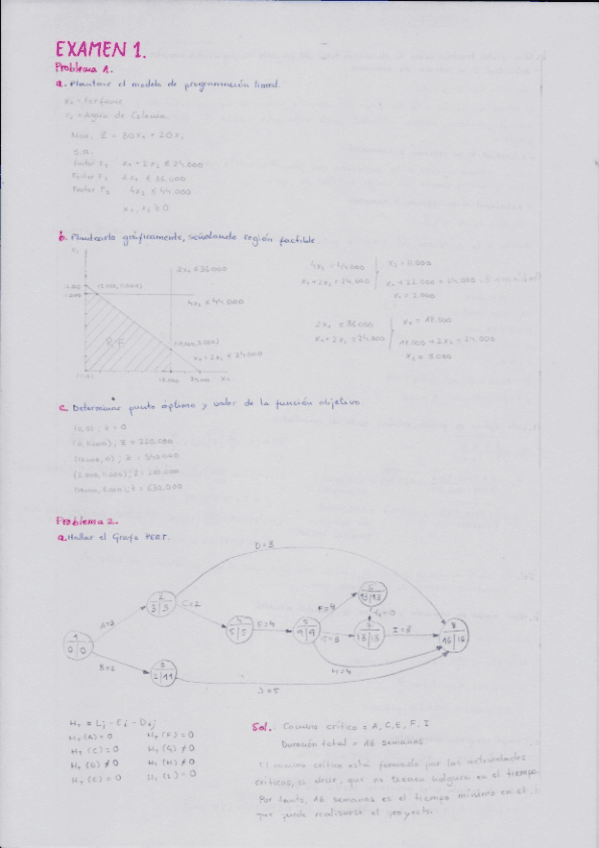 EXAMEN 1.
Problema 1.
a. Plantear el modelo de programación lineal.
x₁ = Perfume
x₂ = Agua de Colonia
Max. Z = 30x₁ + 20x₂
s.a.
Factor F₁ x₁ + 2x₂ ≤ 24.000
Factor F₂ 2x₁ ≤ 36.000
Factor F₃ 4x₂ ≤ 44.000
x₁, x₂ ≥ 0
b. Plantearlo gráficamente, señalando región factible.
2x₁ ≤ 36.000
(2.000, 11.000)
4x₂ ≤ 44.000
R.F.
(18.000, 3.000)
x₁ + 2x₂ ≤ 24.000
18.000 24.000 x₁
4x₂ = 44.000
x₁ + 2x₂ = 24.000
x₂ = 11.000
x₁ + 22.000 = 24.000
x₁ = 2.000
2x₁ = 36.000
x₁ + 2x₂ = 24.000
x₁ = 18.000
18.000 + 2x₂ = 24.000
x₂ = 3.000
c. Determinar punto óptimo y valor de la función objetivo.
(0,0); Z = 0
(0, 11.000); Z = 220.000
(18.000, 0); Z = 540.000
(2.000, 11.000); Z =
(18.000, 3.000); Z =
Problema 2.
a. Hallar el Grafo PERT.
D=3
2
3|3
C=2
A=3
1
0|0
B=2
3
2|11
4
5|5
E=4
5
9|9
F=4
6
13|13
G=3
7
13|13
I=3
H=4
8
16|16
J=5
H_T = L_j - E_i - D_ij
H_T (A) = 0 H_T (F) = 0
H_T (C) = 0 H_T (G) ≠ 0
H_T (D) ≠ 0 H_T (H) ≠ 0
H_T (E) = 0 H_T (I) = 0
Sol. Camino crítico = A, C, E, F, I
Duración total = 16 semanas
El camino crítico está formado por las actividades
críticas, es decir, que no tienen holgura en el tiempo.
Por tanto, 16 semanas es el tiempo mínimo en el
que puede realizarse el proyecto.